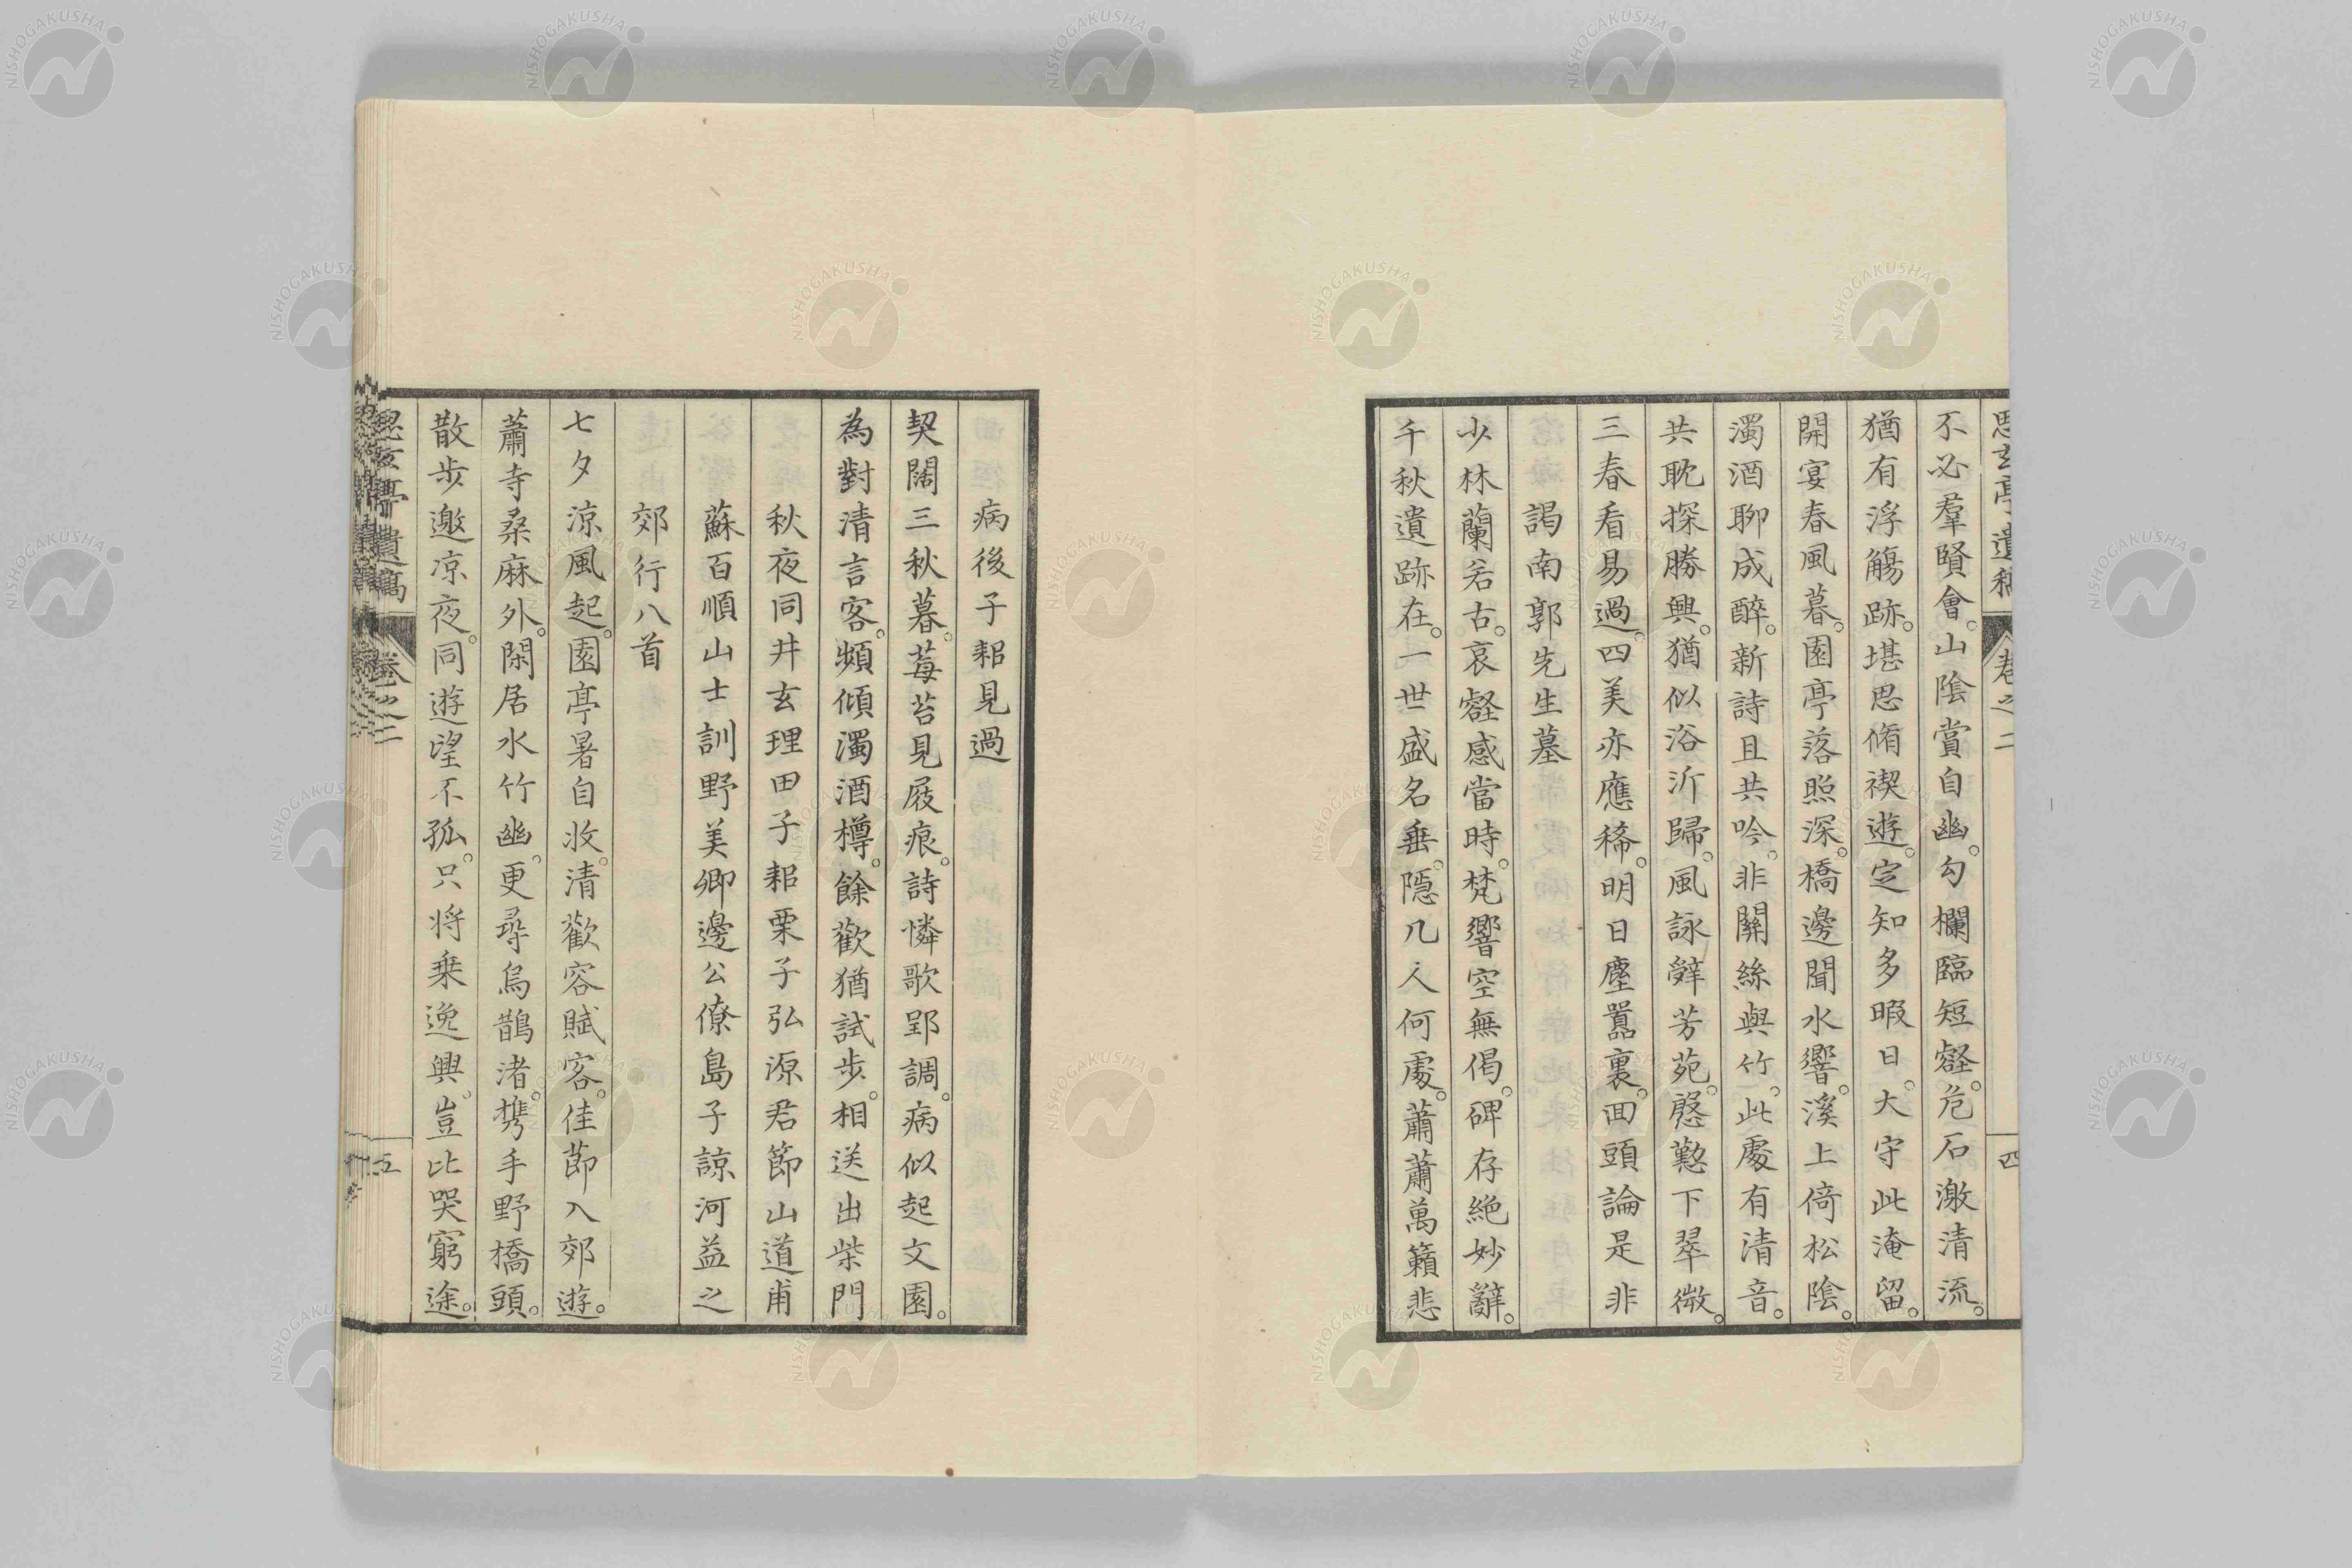 思玄亭遺稿 卷之二 四
不必羣賢會。山陰賞自幽。勾欄臨短壑。危石激清流。
猶有浮觴跡。堪思脩禊遊。定知多暇日。大守此淹留。
開宴春風暮。園亭落照深。橋邊聞水響。溪上倚松陰。
濁酒聊成醉。新詩且共吟。非關絲與竹。此處有清音。
共耽探勝興。猶似浴沂歸。風詠辭芳苑。慇懃下翠微。
三春看易過。四美亦應稀。明日塵囂裏。回頭論是非
謁南郭先生墓
少林蘭若古。哀壑感當時。梵響空無偈。碑存絶妙辭。
千秋遺跡在。一世盛名垂。隱几人何處。蕭蕭萬籟悲
病後子耜見過
契闊三秋暮。莓苔見屐痕。詩憐歌郢調。病似起文園。
為對清言客。頻傾濁酒樽。餘歡猶試步。相送出柴門
秋夜同井玄理田子耜栗子弘源君節山道甫
蘇百順山士訓野美卿邊公僚島子諒河益之
郊行八首
七夕涼風起。園亭暑自收。清歡容賦客。佳節入郊遊。
蕭寺桑麻外。閑居水竹幽。更尋烏鵲渚。携手野橋頭。
散步邀凉夜。同遊望不孤。只将乗逸興。豈比哭窮途。
思玄亭遺稿 卷之二 五